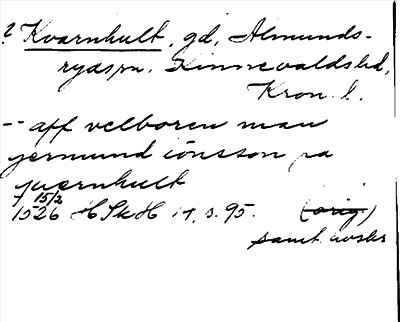 ? Kvarnhult, gd, Almunds-
rydspn. Kinnevaldshd,
Kron. l.
-- aff velboren man
jermund iönsson pa
quernhult
15/2
1526 HSkH 17, s. 95. (orig.)
samt. avskr